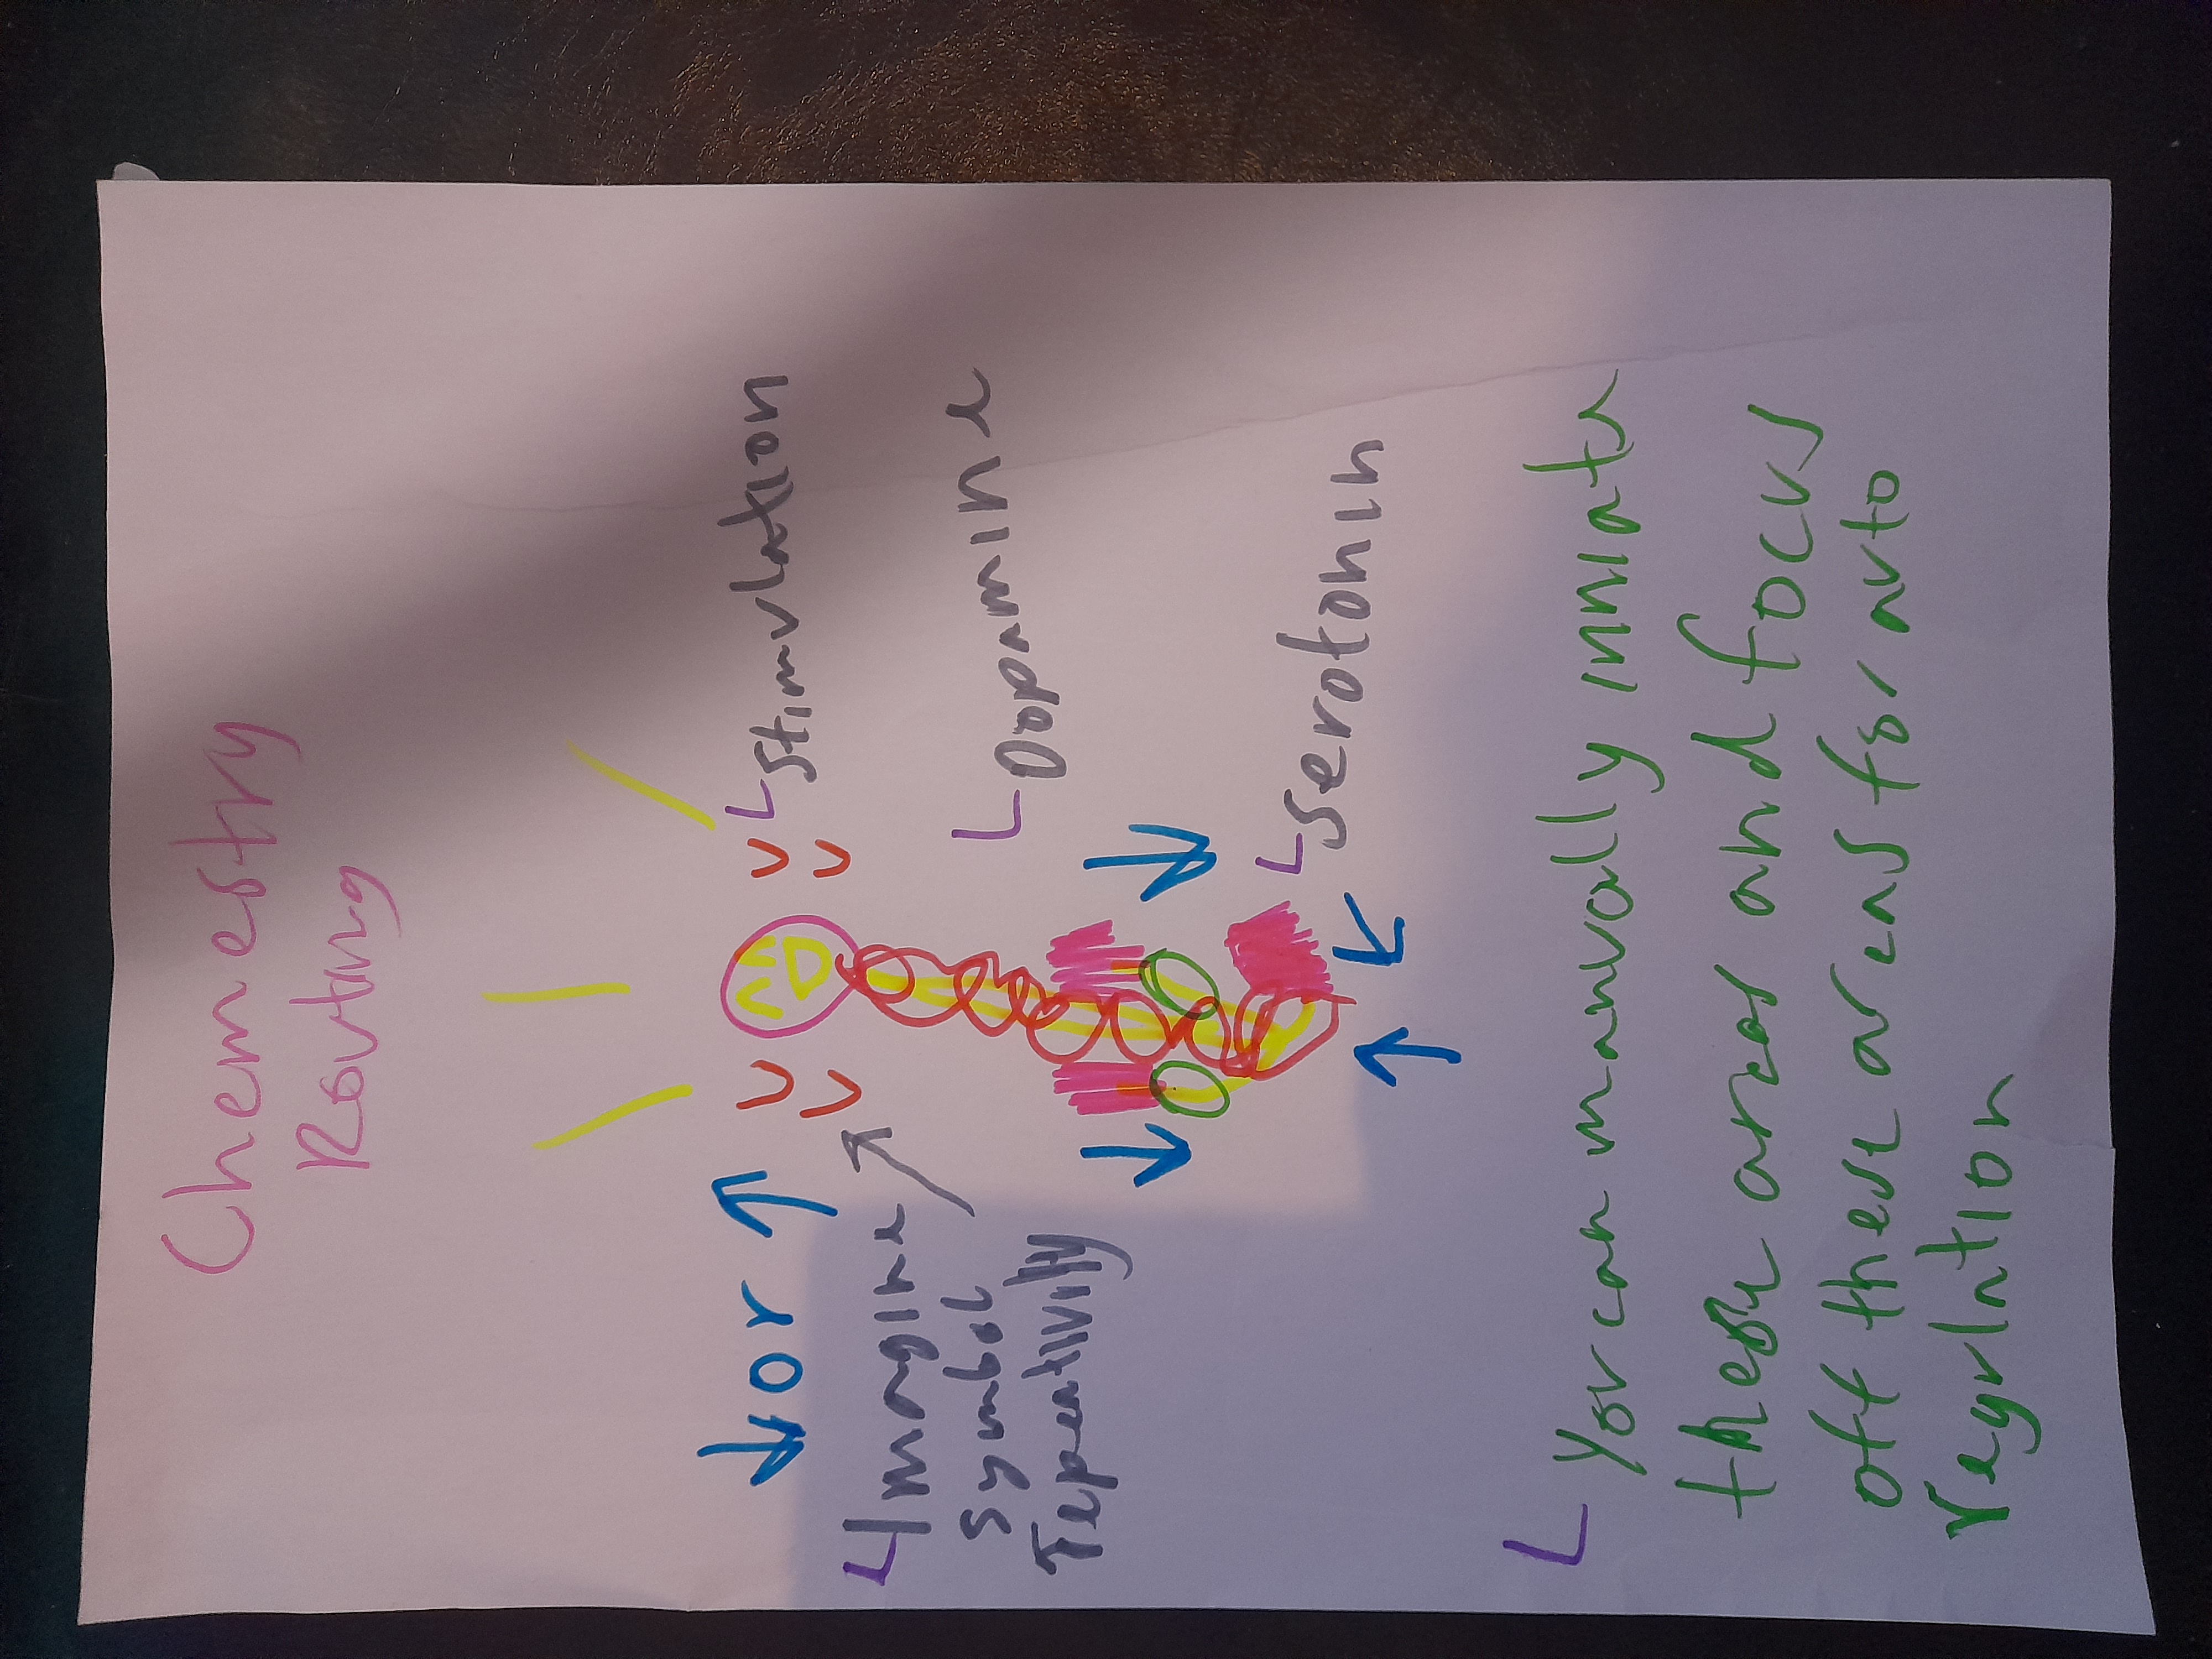 Chemestry
Routing
or
Stimulation
Imagine
symbol
repeativily
Dopamine
Serotonin
You can manually inniate
these areas and focus
off these areas for auto
regulation